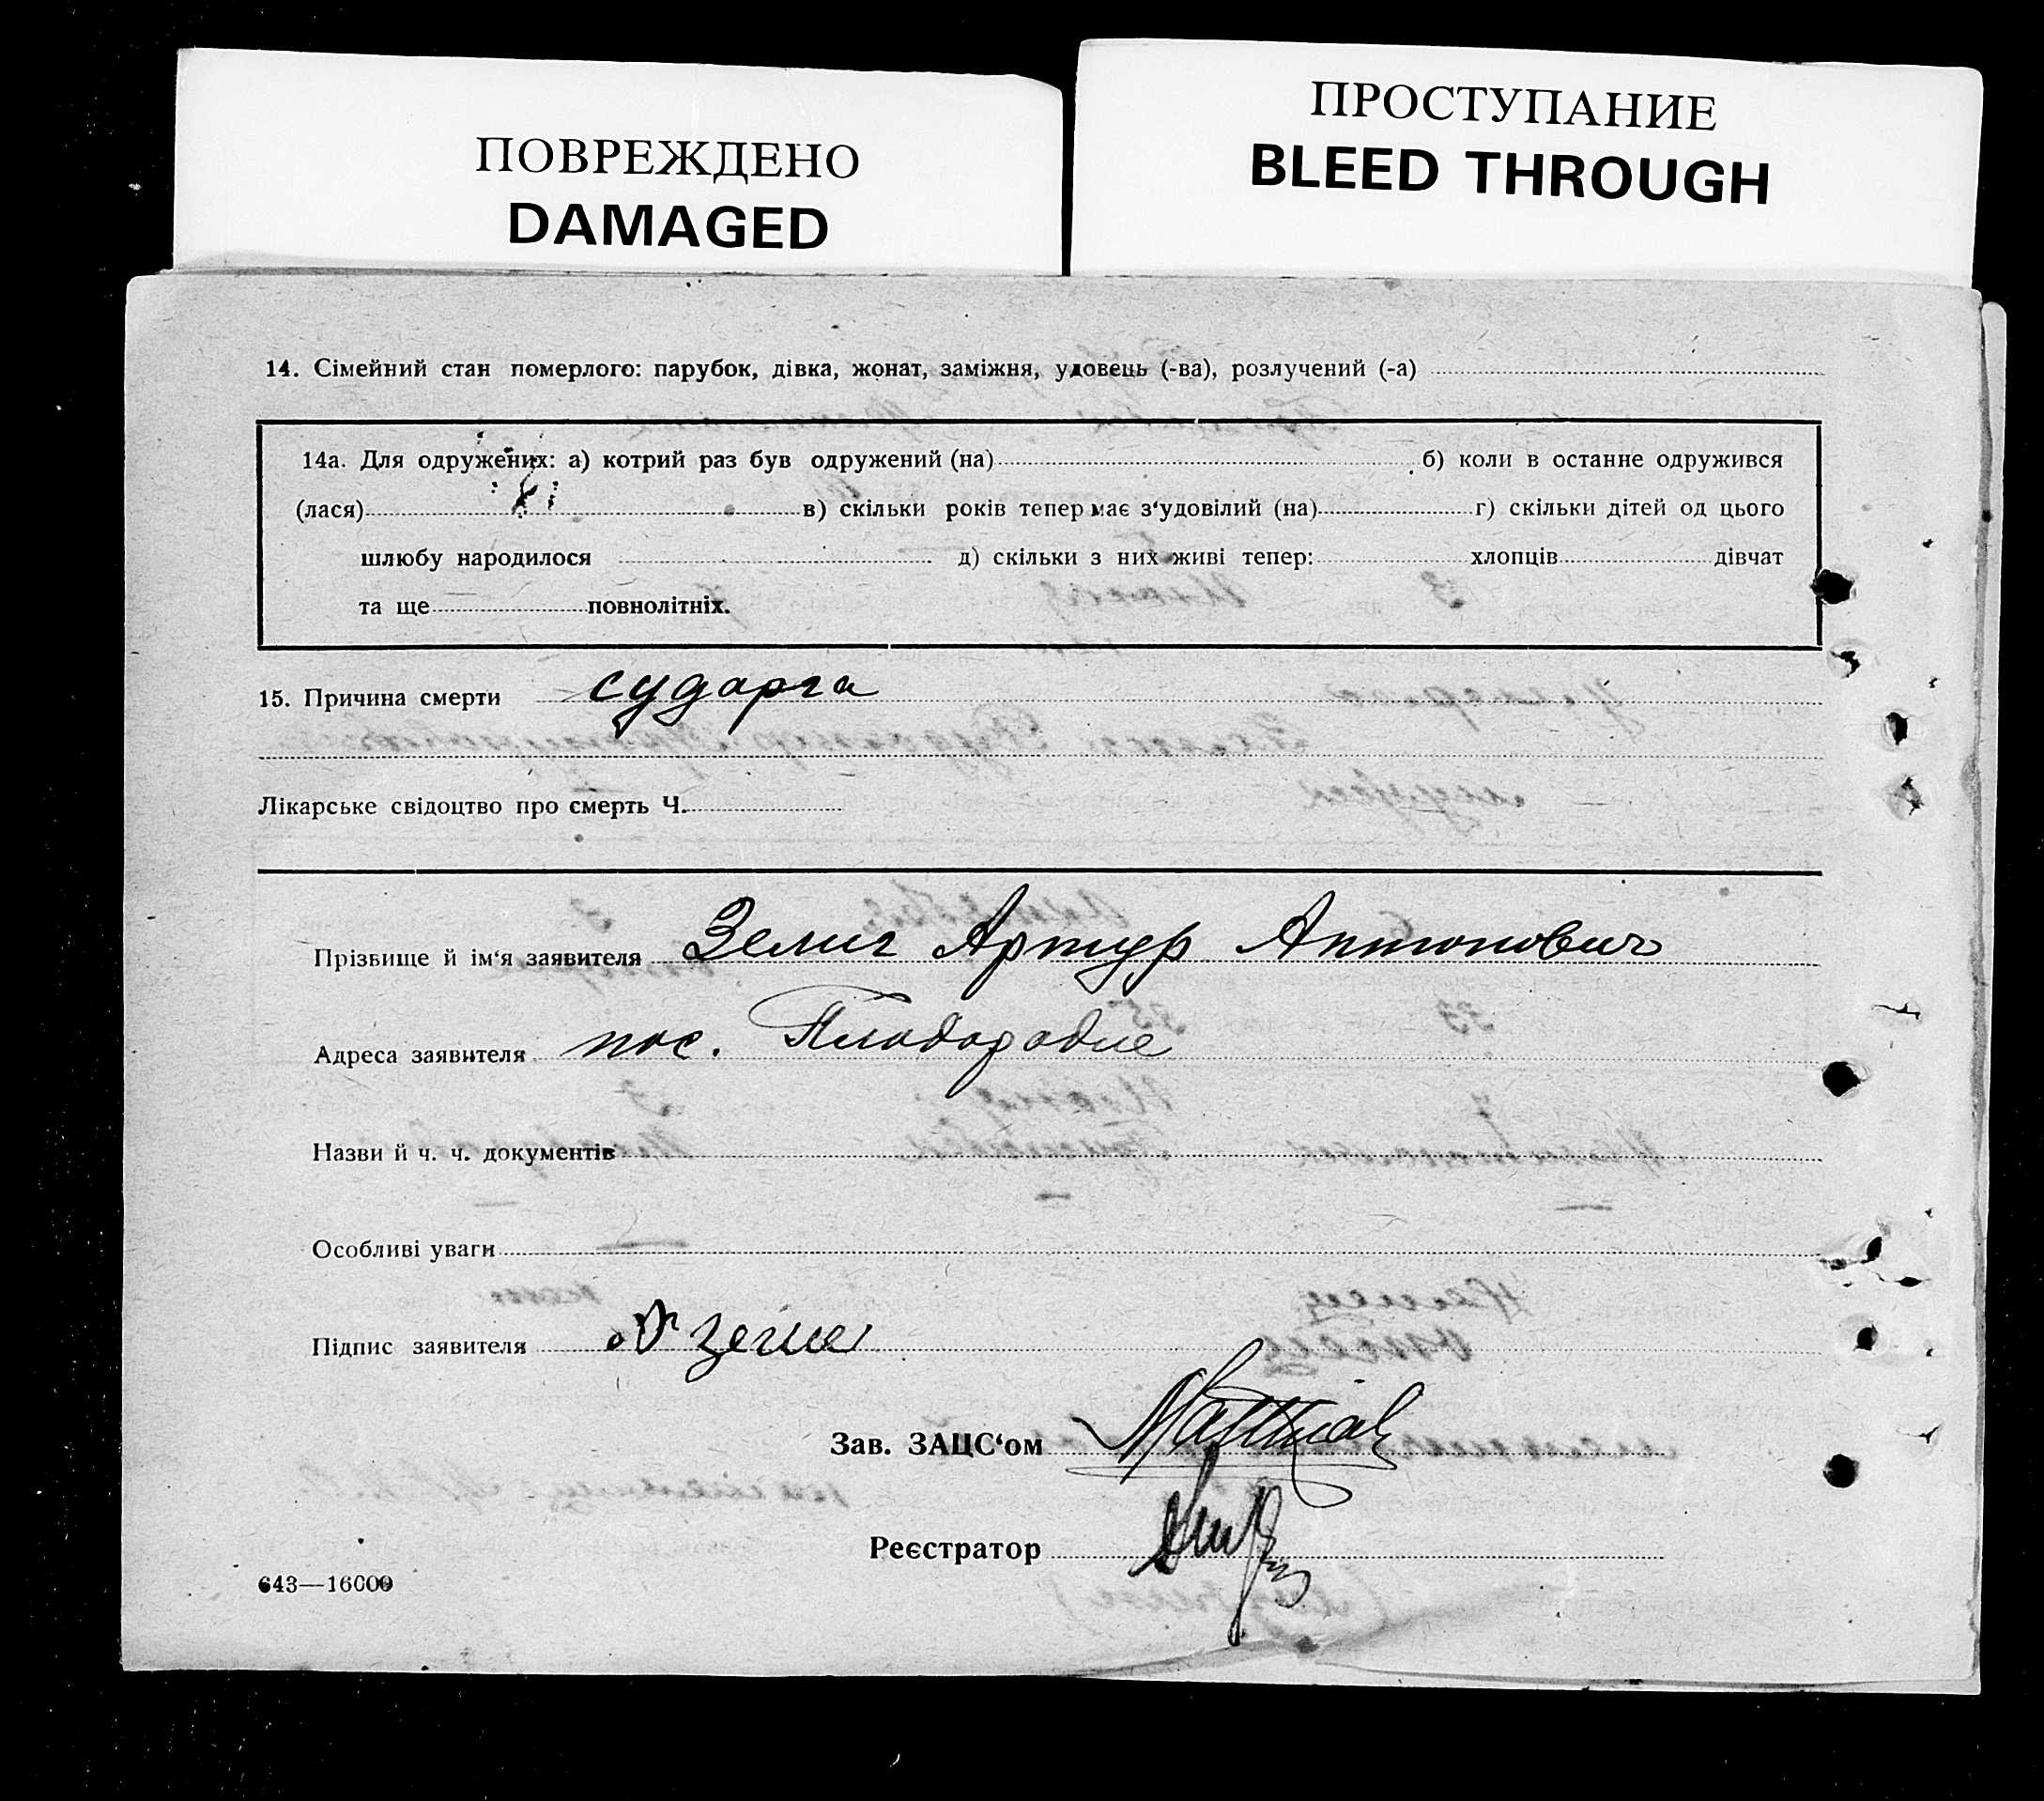 ПОВРЕЖДЕНО
DAMAGED
ПРОСТУПАНИЕ
BLEED THROUGH
14. Сімейний стан померлого: парубок, дівка, жонат, заміжня, удовець (-ва), розлучений (-а)
14а. Для одружених: а) котрий раз був одружений (на) б) коли в останне одружився
(лася) в) скільки років тепер має з‘удовілий (на) г) скільки дітей од цього
шлюбу народилося д) скільки з них живі тепер: хлопців дівчат
та ще повнолітніх.
15. Причина смерти судорга
Лікарське свідоцтво про смерть Ч.
Прізвище й ім‘я заявителя Зелиг Артур Антонович
Адреса заявителя пос. Плодородие
Назви й ч. ч. документів
Особливі уваги
Підпис заявителя
Зав. ЗАЦС‘ом
Реєстратор
643—16000